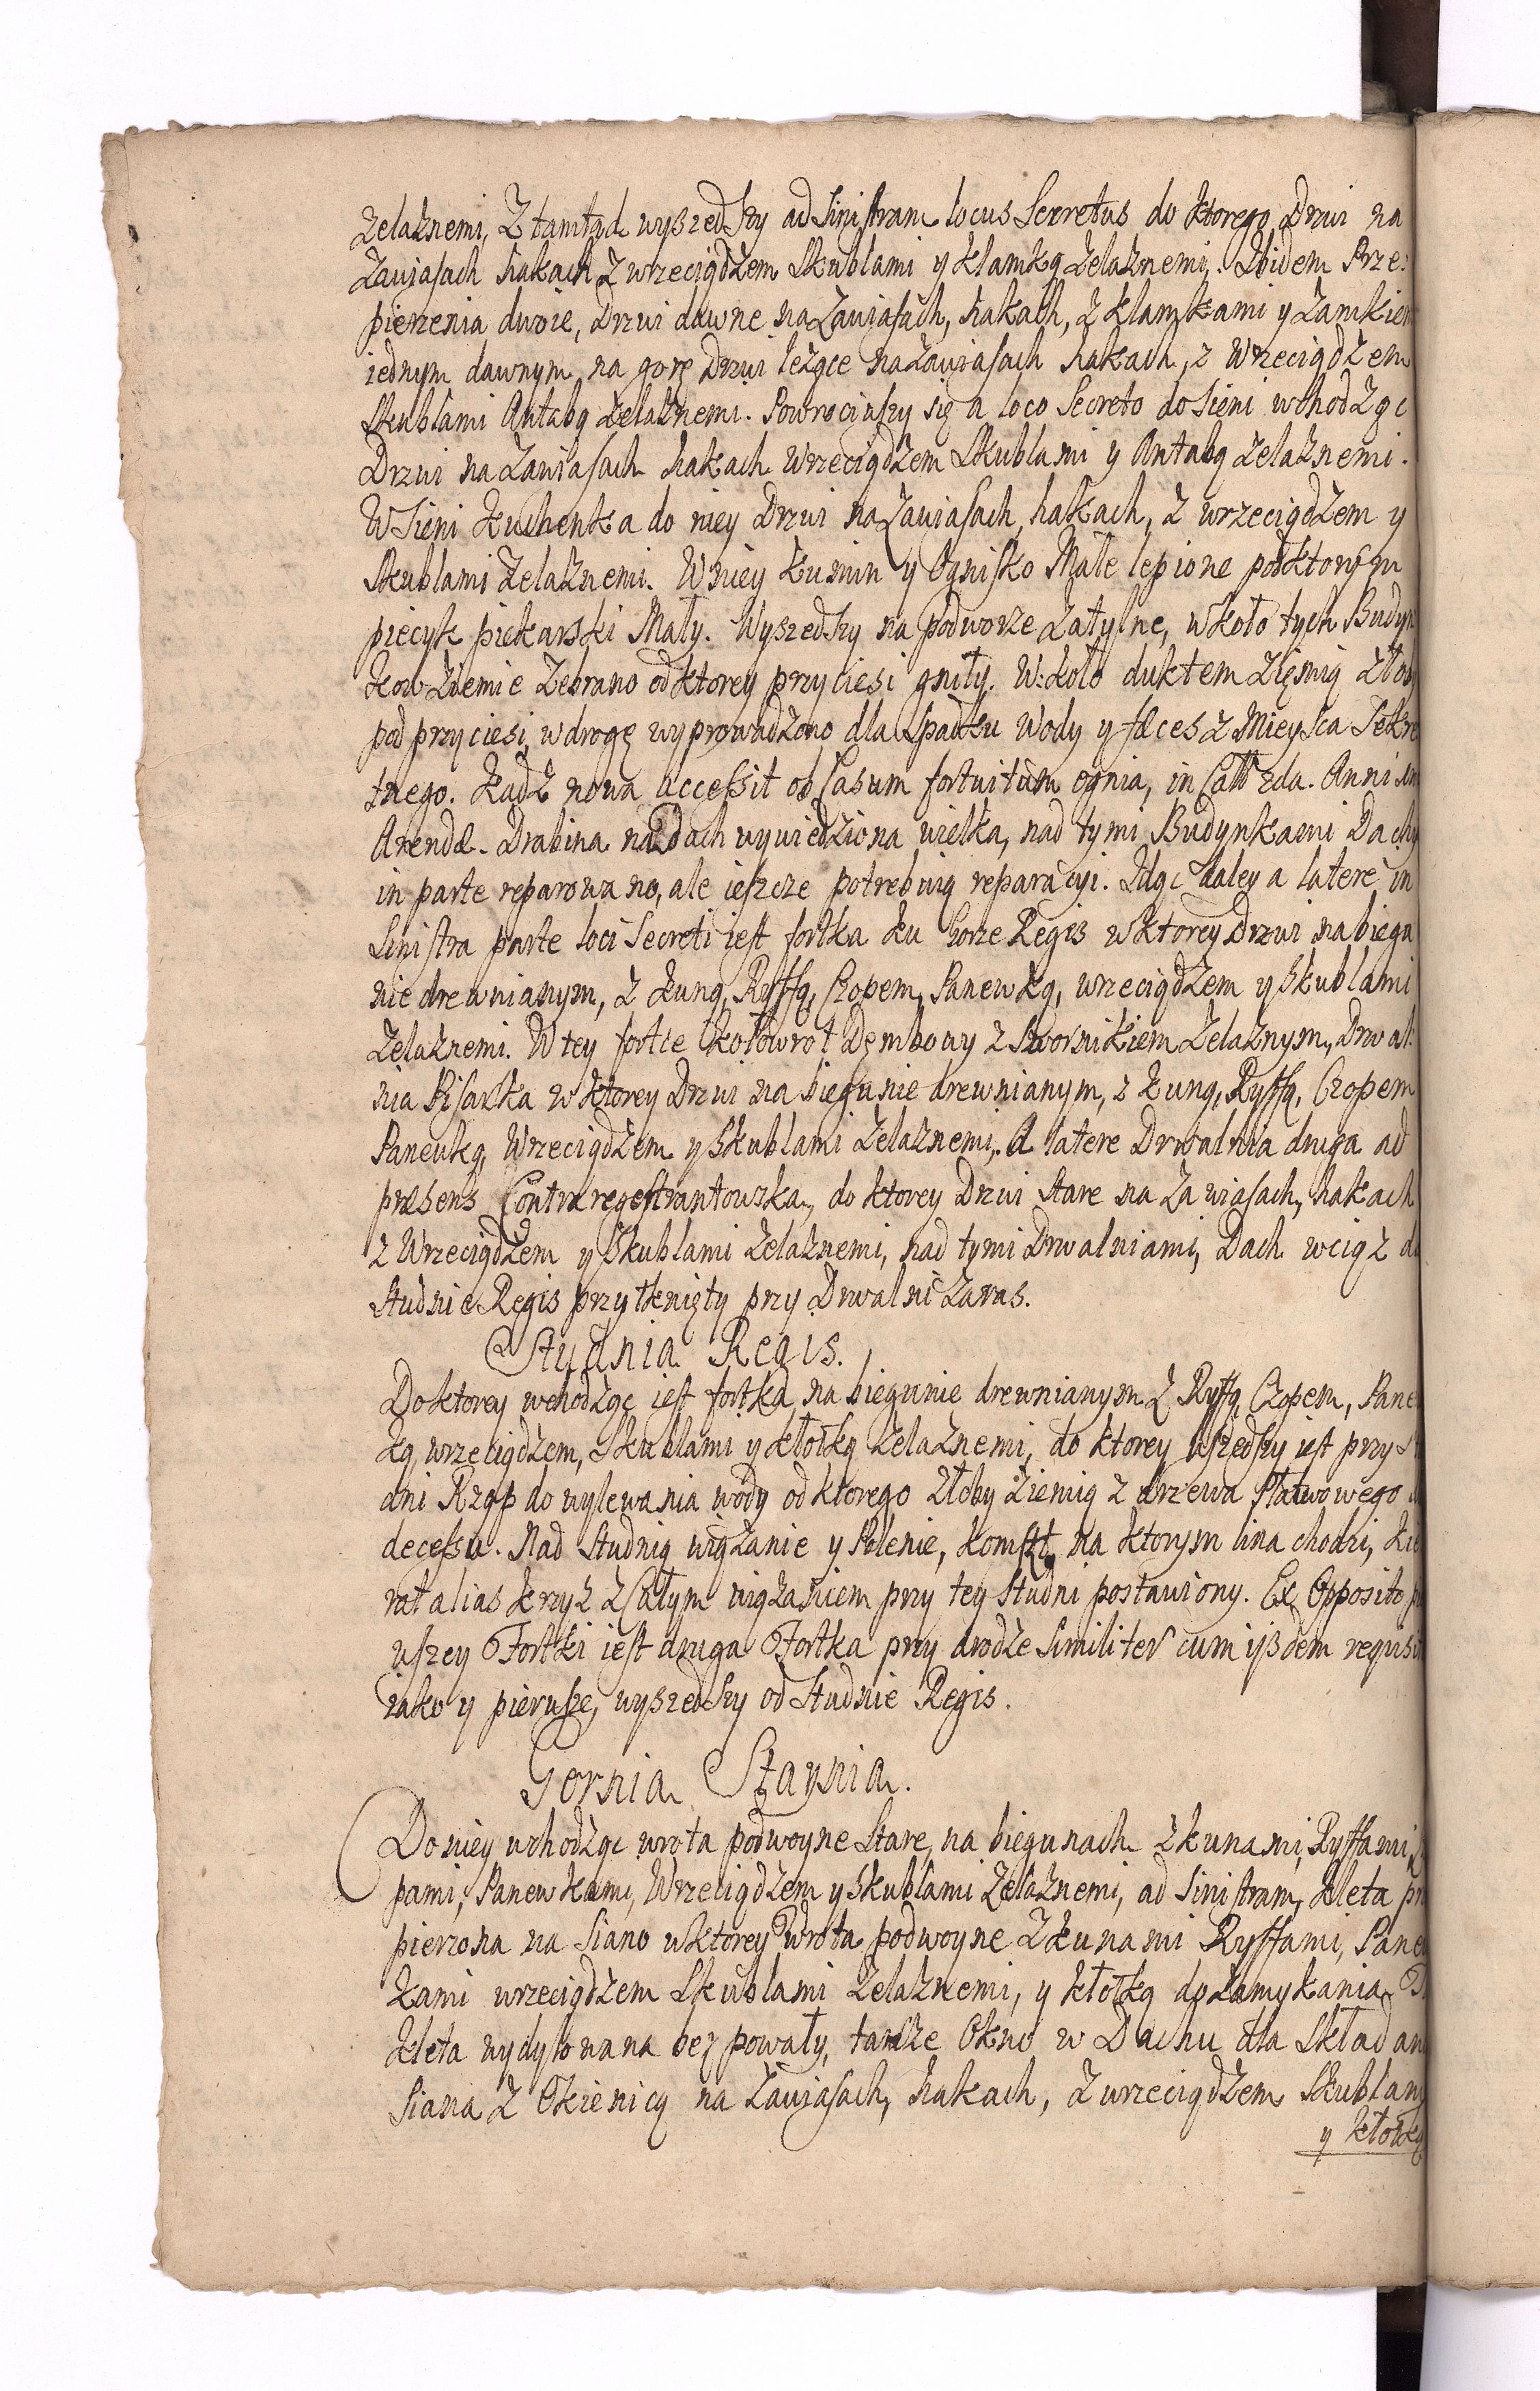 żelaznemi, Z tamtąd wyszedszy ad Sinistram locus Secretus do ktorego Drzwi na
Zawiasach hakach z wrzeciądzem Skublami y klamką żelaznemi. Ibidem Prze:
pierzenia dwoie, Drzwi dawne na Zawiasach, hakach, z klamkami y Zamkiem
iednym dawnym, na gorę Drzwi leżące na Zawiasach hakach, z Wrzeciądzem
Skublami Antabą żelaznemi. Powrociwszy się a loco Secreto do Sieni wchodząc
Drzwi na Zawiasach hakach Wrzeciądzem Skublami y Antabą żelaznemi.
W Sieni kuchenka do niey Drzwi na Zawiasach, hakach, z wrzeciądzem y
Skublami żelaznemi. W niey kumin y Ognisko Małe lepione pod ktorym
piecyk piekarski Mały. Wyszedszy na podworze Zatylne, w koło tych Budyn
kow Ziemie Zebrano od ktorey przyciesi gniły. W: koło duktem Ziemią Złob
pod przyciesi w drogę wyprowadzono dla Spadku Wody y fæces z Mieysca Sekre
tnego. Kadź nowa accessit ob Casum fortuitum ognia, in Anni
Arendæ. Drabina na Dach wywiedziona wielka, nad tymi Budynkami Dachy
in parte reparowano, ale ieszcze potrebuią reparacyi. Idąc daley a latere in
Sinistra parte loci Secreti iest fortka ku Gorze Regis w ktorey Drzwi na biegu
nie drewnianym, z kuną, Ryffą, Czopem, Panewką, wrzeciądzem y Skublami
żelaznemi. W tey fortce kołowrot Dembowy z Sworznikiem żelaznym, Drwal:
nia Pisarska w ktorey Drzwi na biegunie drewnianym, z kuną, Ryffą, Czopem
Panewką, Wrzeciądzem y Skublami żelaznemi. A latere Drwalnia druga ad
præsens Contraregestrantowska, do ktorey Drzwi Stare na Zawiasach, hakach
z Wrzeciądzem y Skublami żelaznemi, nad tymi Drwalniami, Dach wciąż do
Studnie Regis przytknięty przy Drwalni Zaras.
Studnia Regis.
Do ktorey wchodząc iest fortka na biegunie drewnianym z Ryffą Czopem, Pane
ką, wrzeciądzem, Skublami y kłotką żelaznemi, do ktorey wszedszy iest przy
dni Rząp do wylewania wody od ktorego Złoby Ziemią z drzewa Płatwowego
decessu. Nad Studnią wiązanie y Polenie, komszt, na ktorym lina chodzi, kie
rat alias krzyż z Całym wiązaniem przy tey Studni postawiony. Ex Opposito
wszey Fortki iest druga Fortka przy drodze Similiter cum ijsdem requisi
iako y pierwsze, wyszedszy od Studnie Regis.
Gornia Staynia.
Do niey wchodząc wrota podwoyne Stare, na biegunach z kunami, Ryffami,
pami, Panewkami, Wrzeciądzem y Skublami żelaznemi, ad Sinistram, kleta
pierzona na Siano w ktorey Wrota podwoyne z kunami Ryffami, Pane
kami wrzeciądzem Skublami żelaznemi, y kłotką do Zamykania
kleta wydylowana bez powały, także Okno w Dachu dla Składan
Siana z Okienicą na Zawiasach, hakach, z wrzeciądzem Skublami
y kłotką